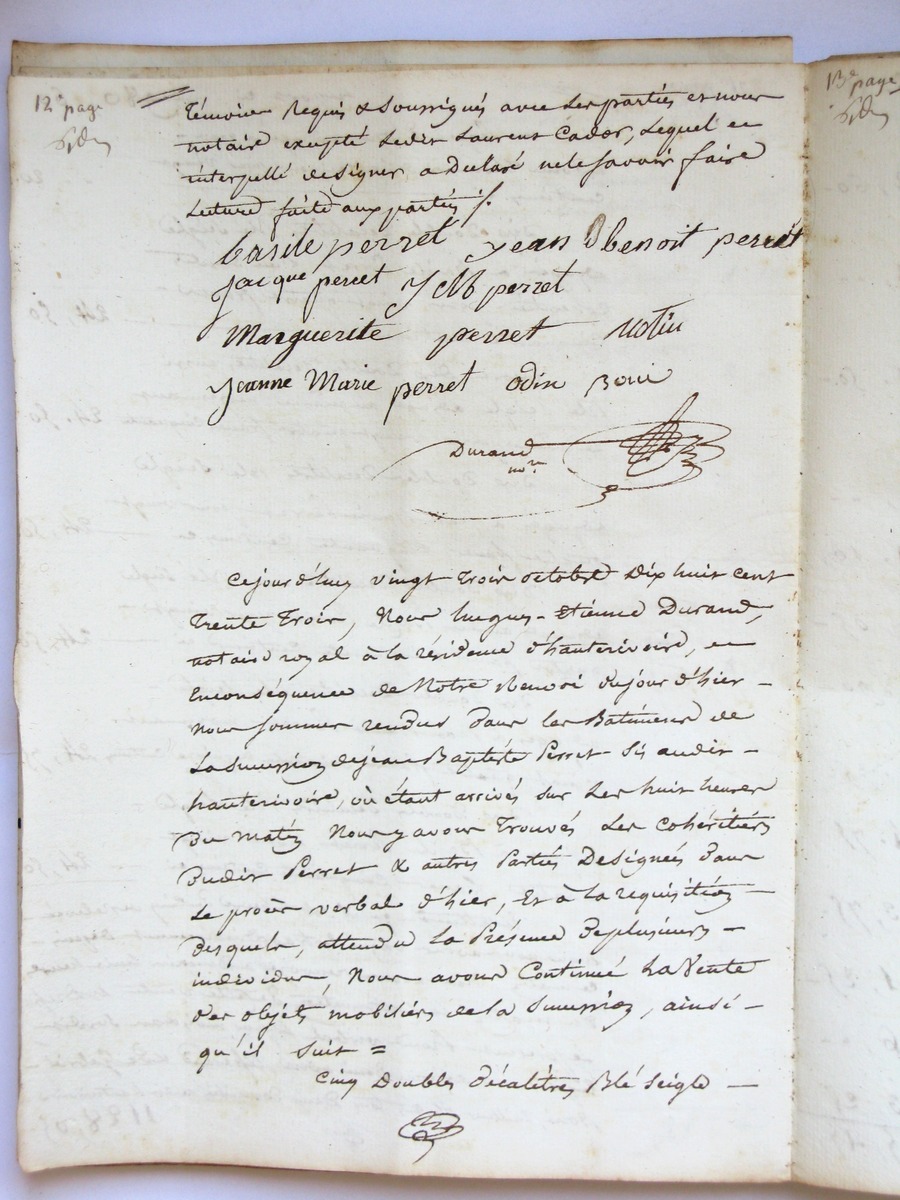 12e page
témoins requis & soussignés avec les parties et nous
notaire excepté ledit Laurent Cador, lequel en
interpellé de signer a déclaré ne le savoir faire
lecture faite aux parties ./.
basile perret jean Benoit perret
jacque perret JM perret
Marguerite perret
jeanne Marie perret odin
Durand
nore
Cejourd'huy vingt trois octobre dix huit cent
trente trois, Nous hugues-Etienne Durand,
notaire royal à la résidence d'hauterivoire, en
Enconséquence de Notre Renvoi dujour d'hier -
nous sommes rendus dans les Batiments de
La Succession dejean Baptiste Perret sis audit -
hauterivoire, où étant arrivés sur les huit heures
du matin Nous y avons trouvés les cohéritiers
dudit Perret & autres Parties Designées dans
le procès verbal d'hier, Et à la requisition
desquels, attendu la Présence deplusieurs -
individus, Nous avons Continué la Vente
des objets mobiliers de la Succession, ainsi -
qu'il suit =
Cinq Doubles décalitres Blé seigle -
13e page